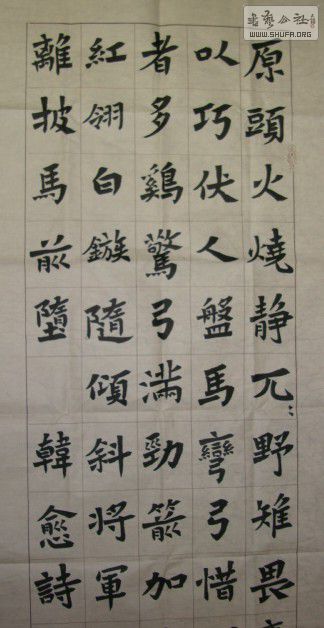 書藝公社
WWW.SHUFA.ORG
原頭火燒静兀〻野雉畏
以巧伏人盤馬彎弓惜
者多鷄驚弓滿勁箭加
紅翎白鏃隨傾斜將軍
離披馬前墮 韓愈詩